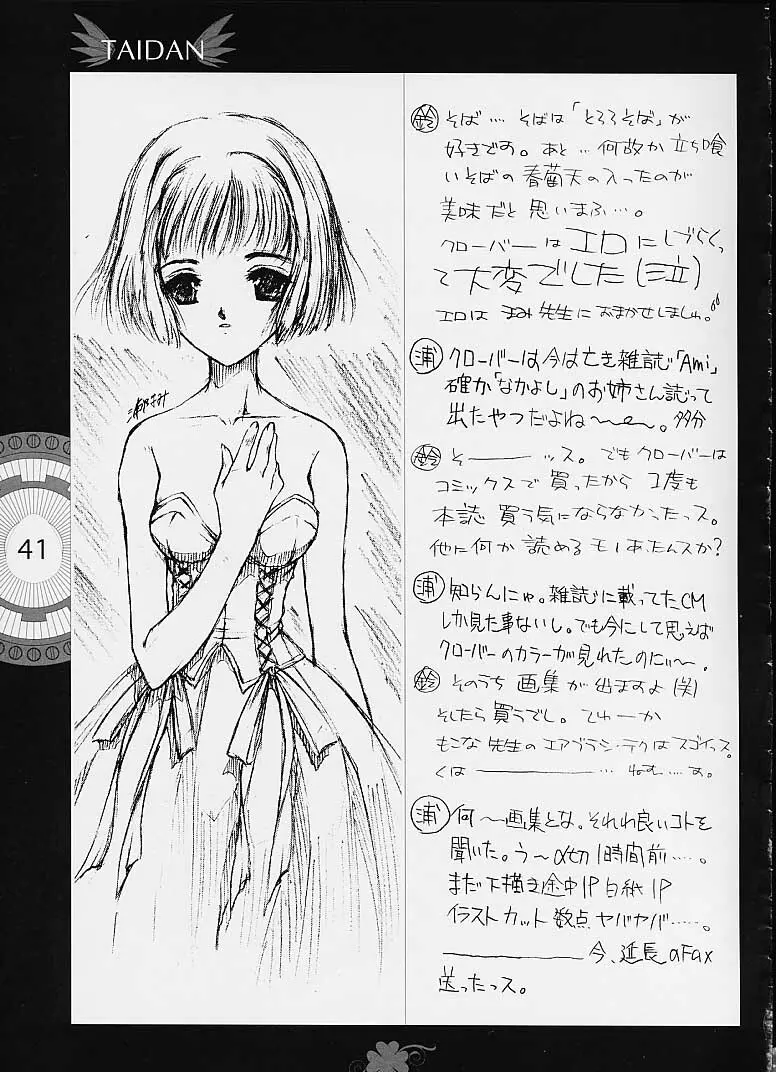 TAIDAN
鈴 そば… そばは「とろろそば」が
好きです。あと… 何故か立ち喰
いそばの春菊天の入ったのが
美味だと思いまふ…。
クローバーはエロにしづらくっ
て大変でした(泣)
エロは まみ先生におまかせしましゅ。
浦 クローバーは今は亡き雑誌「Ami」
確か「なかよし」のお姉さん誌って
出たやつだよね〜〜。多分
鈴 そ———ッス。でもクローバーは
コミックスで買ったから 1度も
本誌 買う気にならなかったっス。
他に何か読めるモノあったんスか?
浦 知らんにゅ。雑誌に載ってたCM
しか見た事ないし。でも今にして思えば
クローバーのカラーが見れたのにぃ〜。
鈴 そのうち 画集が出ますよ(笑)
そしたら買うでし。てゅーか
もこな先生のエアブラシ・テクはスゴイっス。
くは————… ねむ…す。
浦 何〜画集とな。それわ良いコトを
聞いた。う〜〆切1時間前……。
まだ下描き途中1P白紙1P
イラストカット数点ヤバヤバ……。
————今、延長のFax
送ったっス。
41